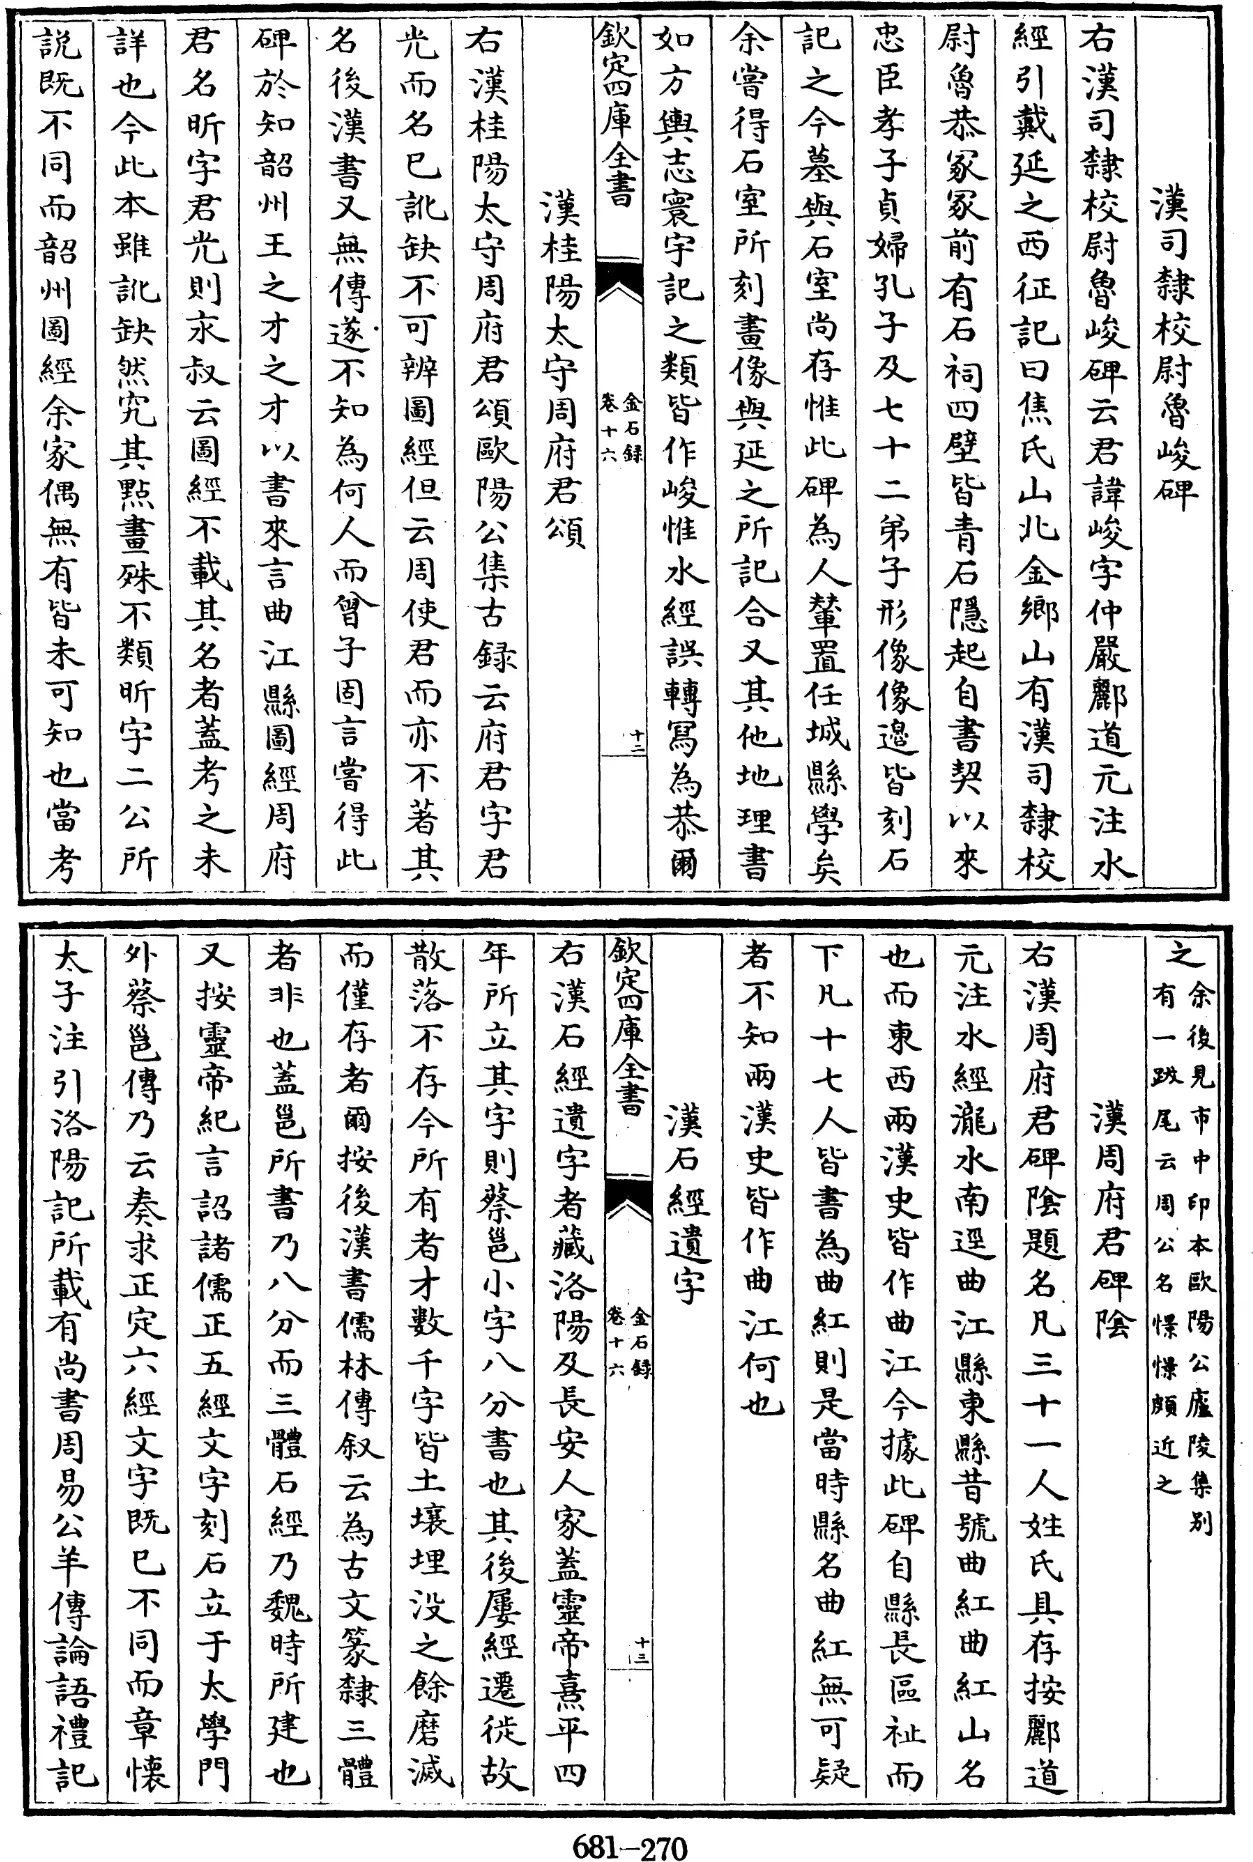 漢司隸校尉魯峻碑
右漢司隸校尉魯峻碑云君諱峻字仲嚴酈道元注水
經引戴延之西征記曰焦氏山北金鄉山有漢司隸校
尉魯恭冢冢前有石祠四壁皆青石隱起自書契以來
忠臣孝子貞婦孔子及七十二弟子形像像邊皆刻石
記之今墓與石室尚存惟此碑為人輦置任城縣學矣
余嘗得石室所刻畫像與延之所記合又其他地理書
如方輿志寰宇記之類皆作峻惟水經誤轉寫為恭爾
欽定四庫全書
金石録
卷十六
十二
漢桂陽太守周府君頌
右漢桂陽太守周府君頌歐陽公集古録云府君字君
光而名已訛缺不可辨圖經但云周使君而亦不著其
名後漢書又無傳遂不知為何人而曾子固言嘗得此
碑於知韶州王之才之才以書來言曲江縣圖經周府
君名昕字君光則永叔云圖經不載其名者蓋考之未
詳也今此本雖訛缺然究其點畫殊不類昕字二公所
説既不同而韶州圖經余家偶無有皆未可知也當考
之余後見市中印本歐陽公廬陵集别
有一跋尾云周公名憬憬頗近之
漢周府君碑陰
右漢周府君碑陰題名凡三十一人姓氏具存按酈道
元注水經瀧水南逕曲江縣東縣昔號曲紅曲紅山名
也而東西兩漢史皆作曲江今據此碑自縣長區祉而
下凡十七人皆書為曲紅則是當時縣名曲紅無可疑
者不知兩漢史皆作曲江何也
漢石經遺字
欽定四庫全書
金石録
卷十六
十三
右漢石經遺字者藏洛陽及長安人家蓋靈帝熹平四
年所立其字則蔡邕小字八分書也其後屢經遷徙故
散落不存今所有者才數千字皆土壤埋没之餘磨滅
而僅存者爾按後漢書儒林傳叙云為古文篆隸三體
者非也蓋邕所書乃八分而三體石經乃魏時所建也
又按靈帝紀言詔諸儒正五經文字刻石立于太學門
外蔡邕傳乃云奏求正定六經文字既已不同而章懷
太子注引洛陽記所載有尚書周易公羊傳論語禮記
681-270